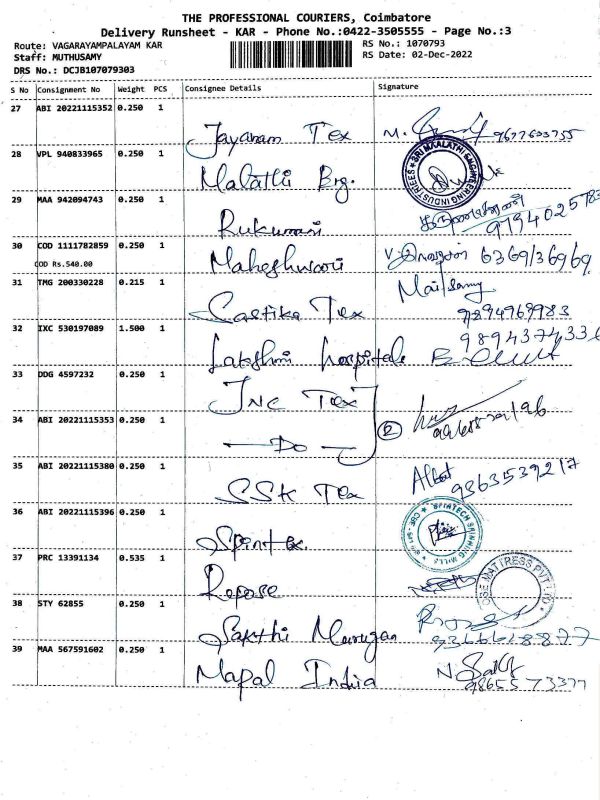 THE PROFESSIONAL COURIERS, Coimbatore
Delivery Runsheet - KAR - Phone No.:0422-3505555 - Page No.:3
Route: VAGARAYAMPALAYAM KAR RS No.: 1070793
Staff: MUTHUSAMY RS Date: 02-Dec-2022
DRS No.: DCJB107079303
S No Consignment No Weight PCS Consignee Details Signature
27 ABI 20221115352 0.250 1
Jayaram Tex M. 9677603755
28 VPL 940833965 0.250 1
Malathi Eng. SRI MAALATHI ENGINEERING INDUSTRIES
29 MAA 942094743 0.250 1
Rukumani
30 COD 1111782859 0.250 1
Maheshwari 6369136969
COD Rs.540.00
31 TMG 200330228 0.215 1
Castika Tex 9894969983
32 IXC 530197089 1.500 1
Lakshmi hospitals
33 DDG 4597232 0.250 1
JNC Tex
34 ABI 20221115353 0.250 1
Do
35 ABI 20221115380 0.250 1
SSK Tex 9863539217
36 ABI 20221115396 0.250 1
Spintex. SPINTECH SPINNING MILLS
37 PRC 13391134 0.535 1
Repose OSE MATTRESS PVT LTD
38 STY 62855 0.250 1
Sakthi Murugan
39 MAA 567591602 0.250 1
Mapal India 9865573377